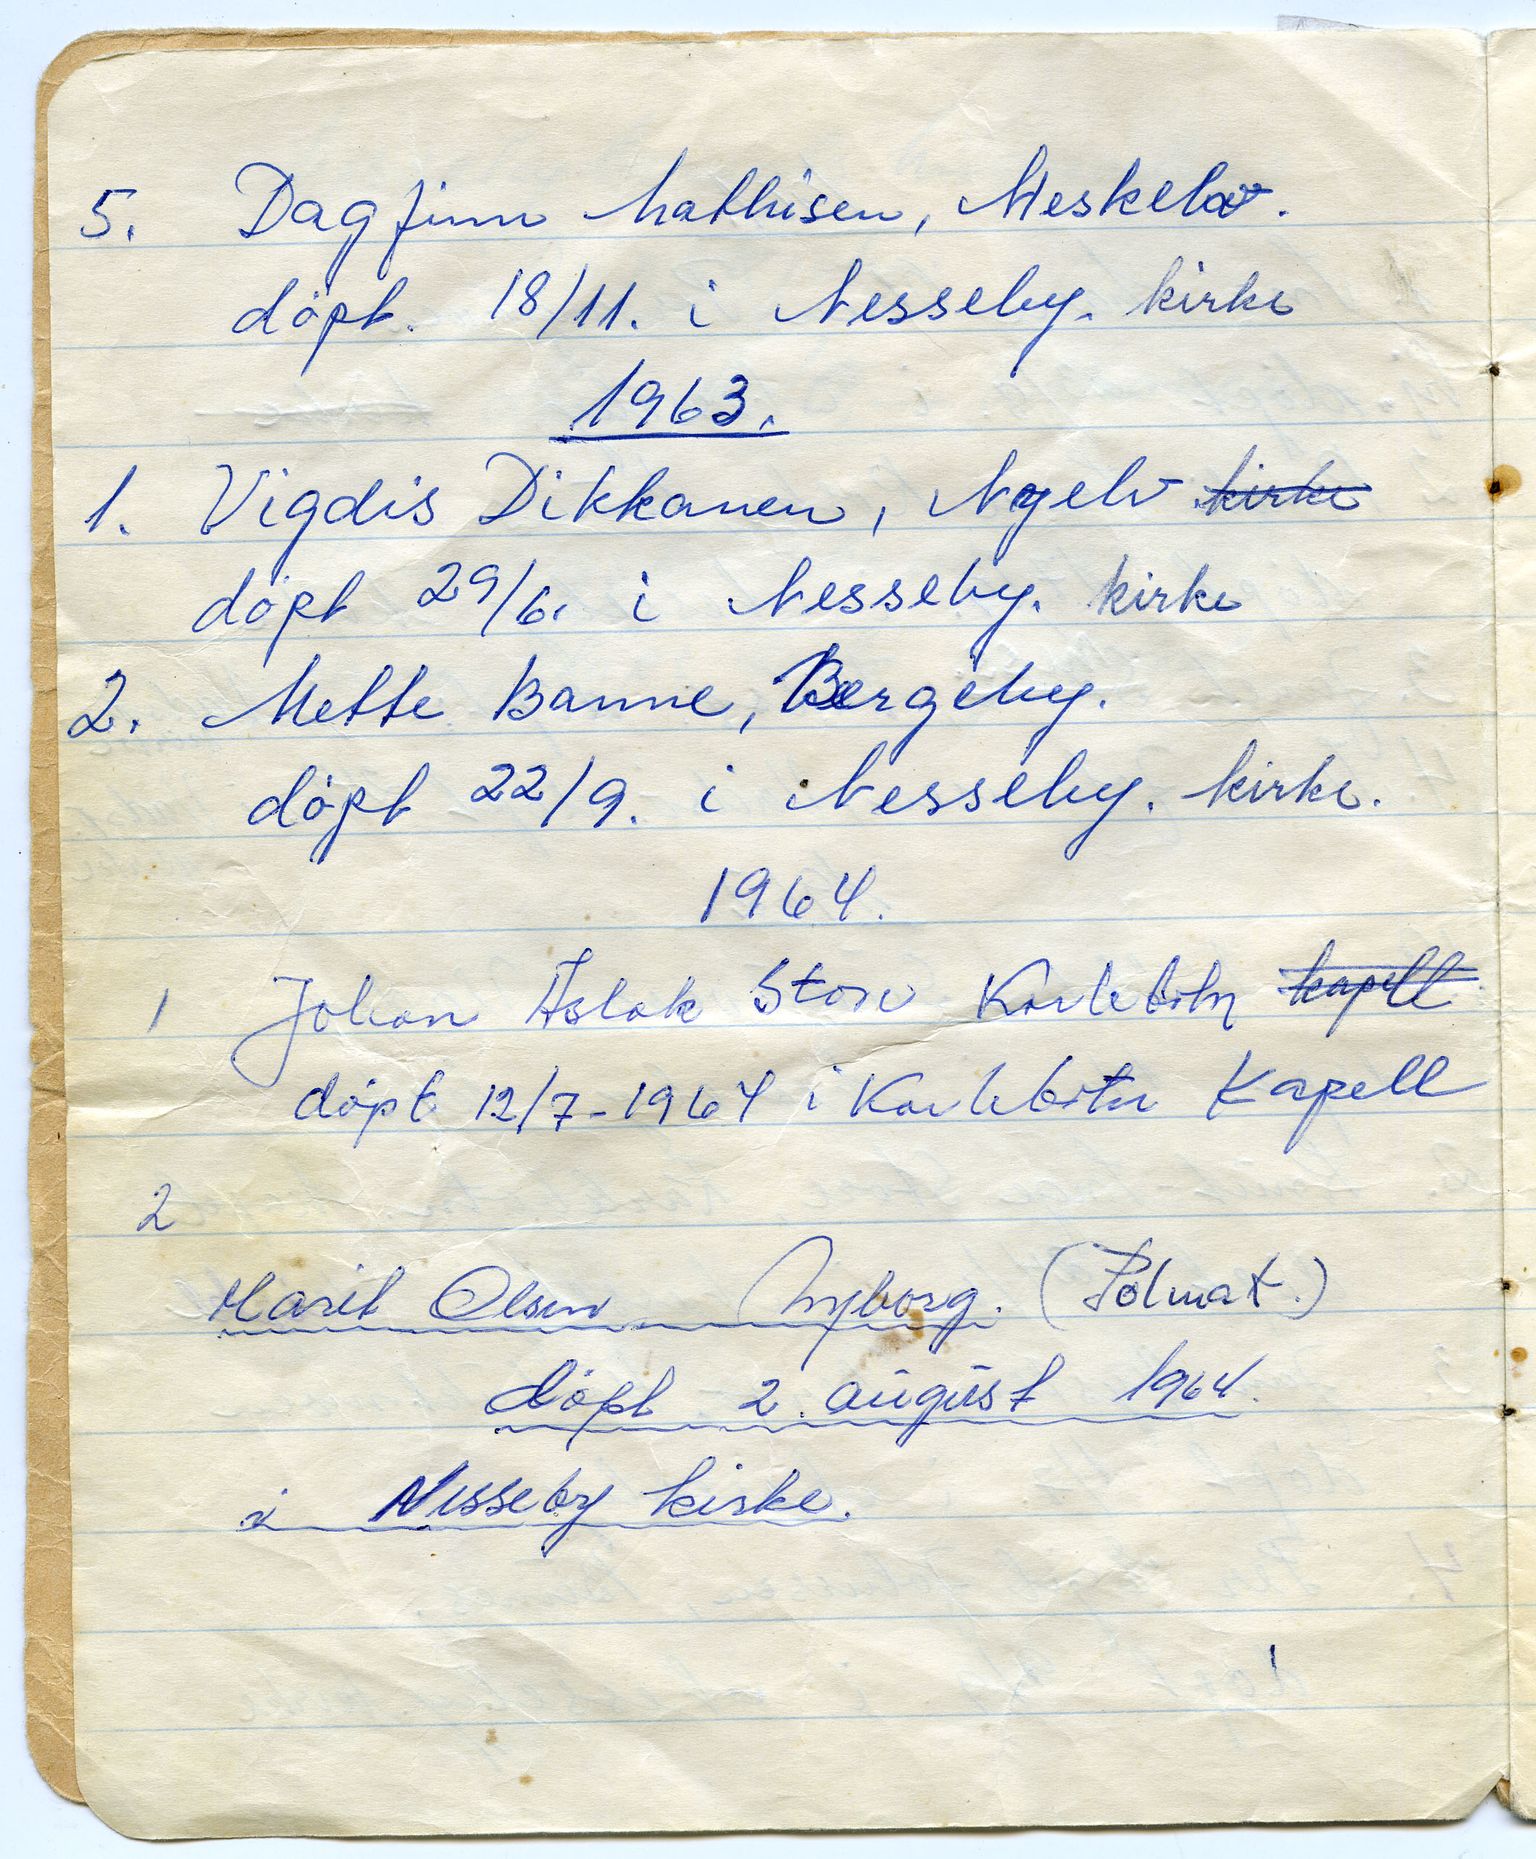 5. Dagfinn Mathisen, Meskelv.
döpt. 18/11. i Nesseby. kirke
1963.
1. Vigdis Dikkanen, Nyelv kirke
döpt 29/6. i Nesseby. kirke
2. Mette Banne, Bergeby.
döpt 22/9. i Nesseby. kirke.
1964.
1 Johan Aslak Store Karlebotn kapell
döpt 12/7-1964 i Karlebotn Kapell
2
Marit Olsen Nyborg. (Polmak.)
döpt 2. august 1964.
i Nesseby kirke.